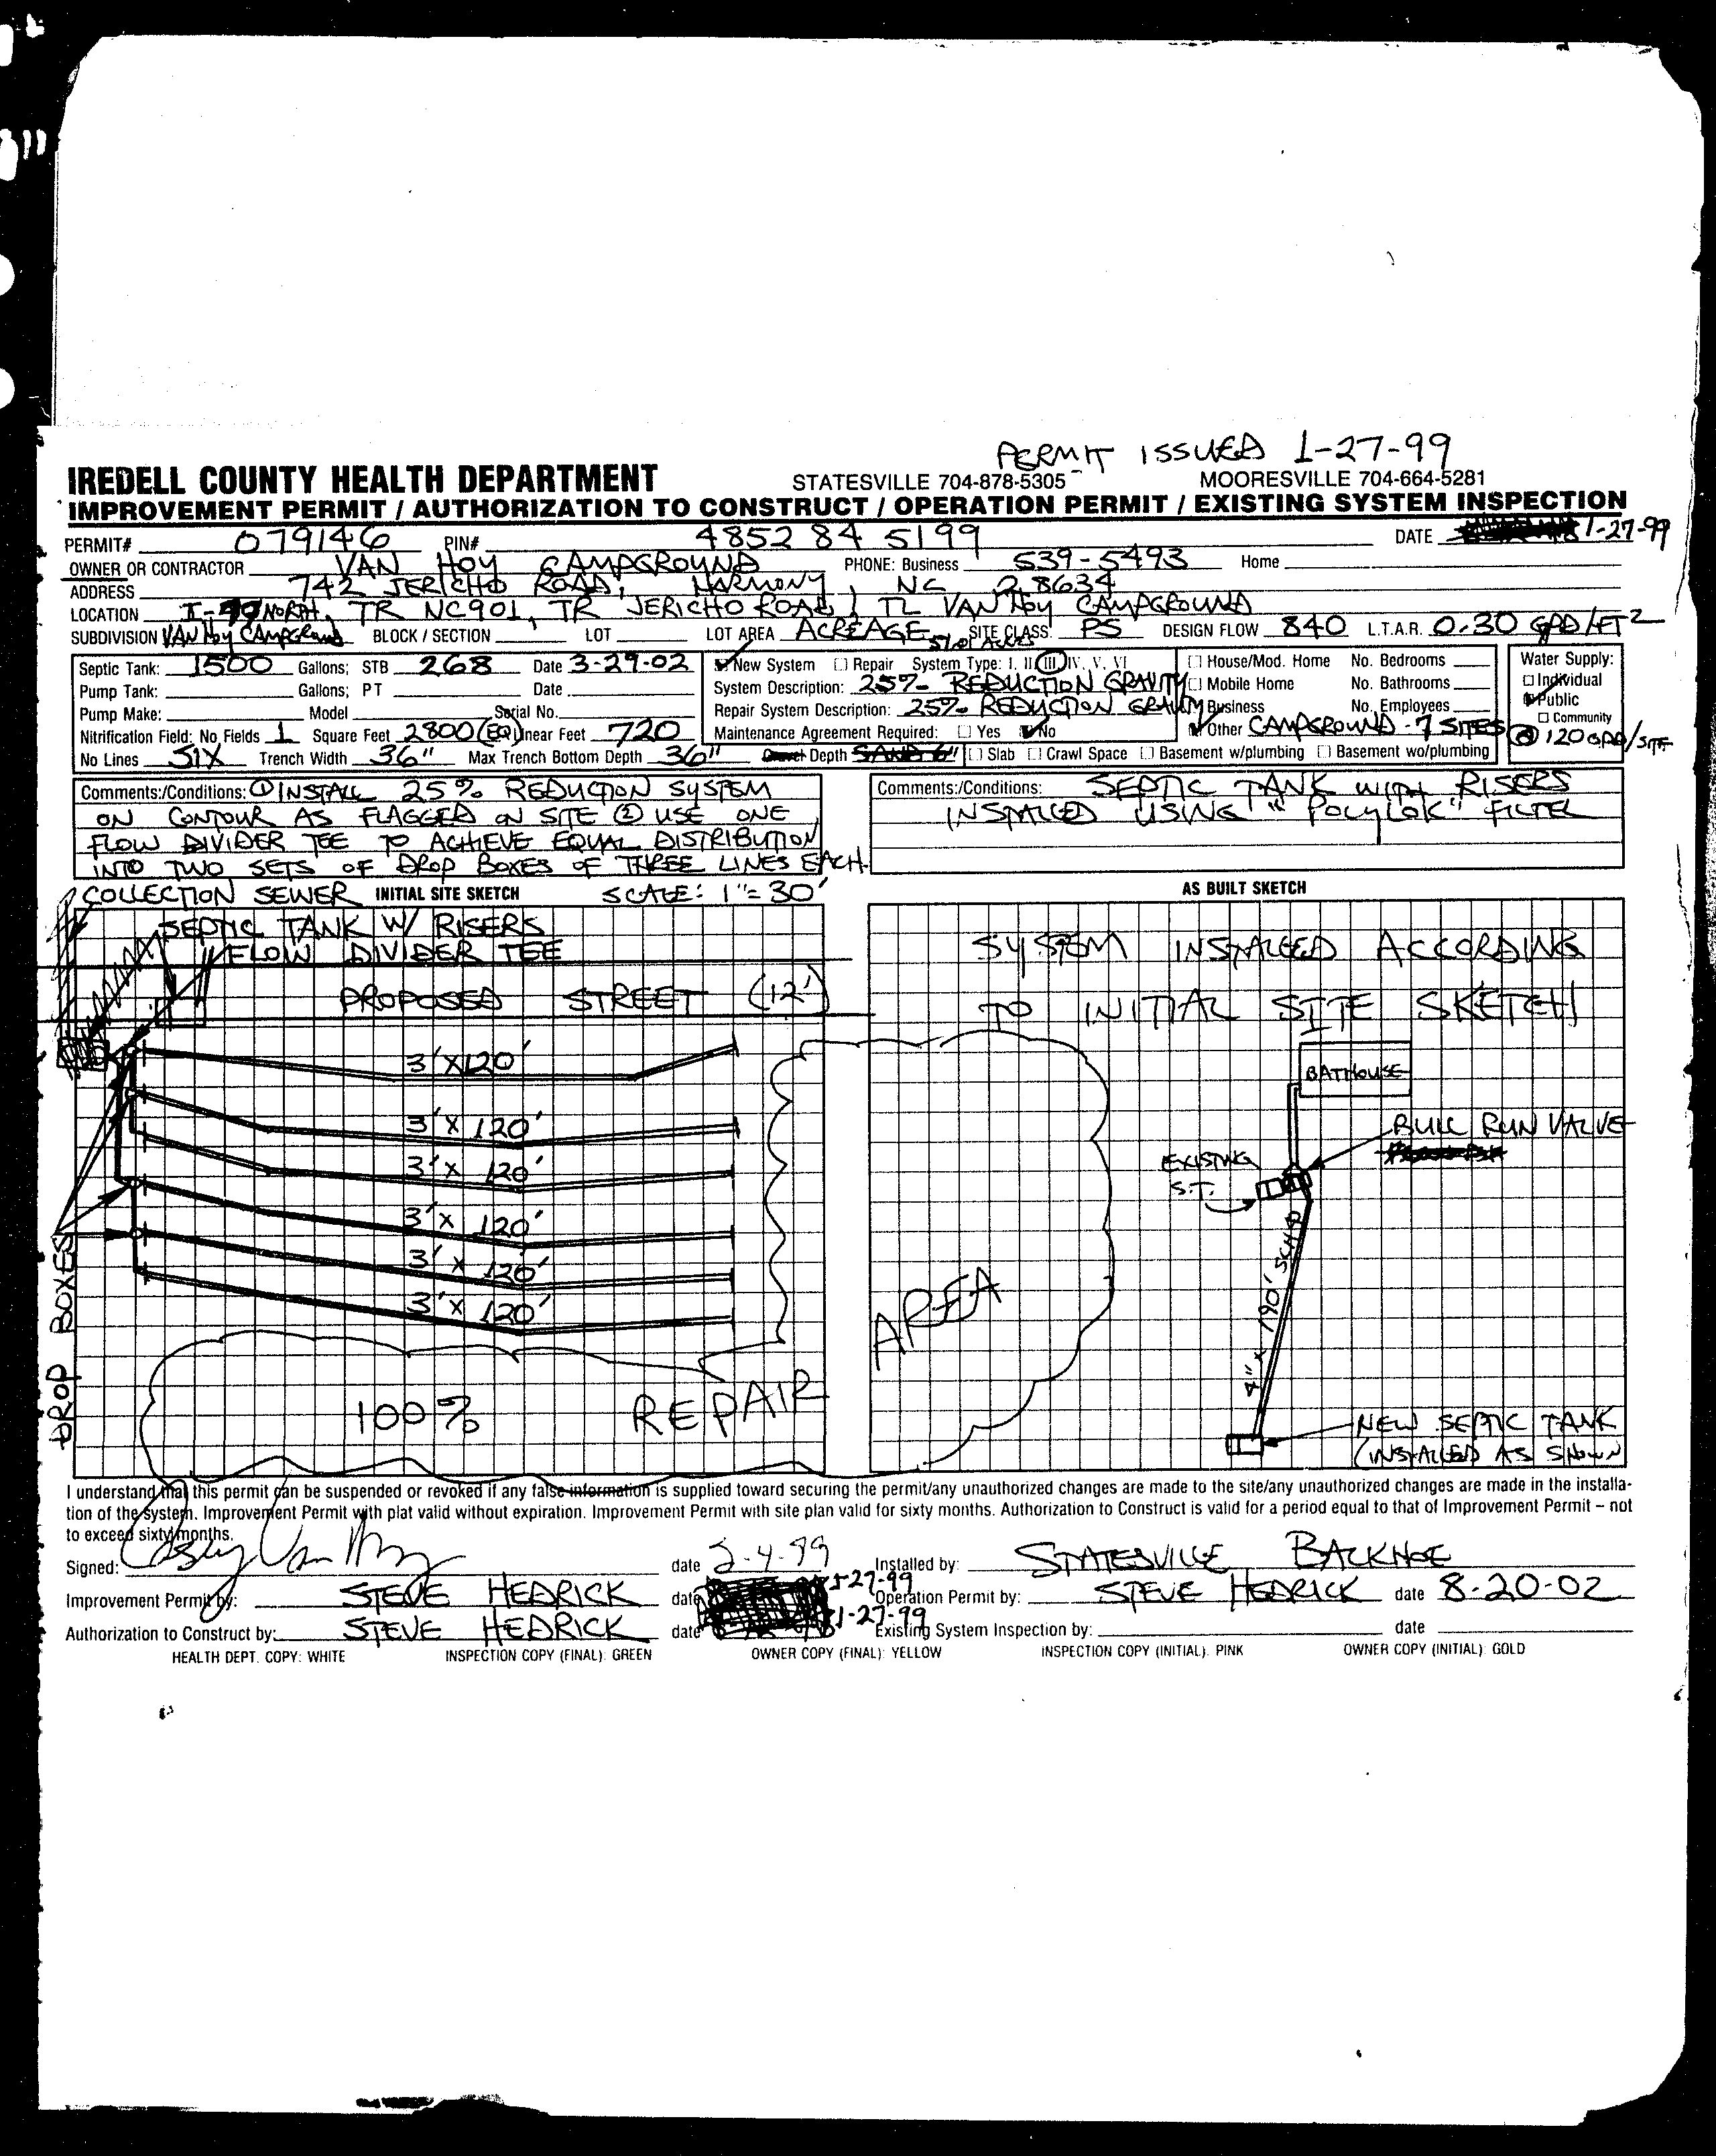 PERMIT ISSUED 1-27-99
IREDELL COUNTY HEALTH DEPARTMENT STATESVILLE 704-878-5305 MOORESVILLE 704-664-5281
IMPROVEMENT PERMIT / AUTHORIZATION TO CONSTRUCT / OPERATION PERMIT / EXISTING SYSTEM INSPECTION
PERMIT# 079146 PIN# 4852 84 5199 DATE 1-27-99
OWNER OR CONTRACTOR VAN HOY CAMPGROUND PHONE: Business 539-5493 Home
ADDRESS 742 JERICHO ROAD, HARMONY, NC 28634
LOCATION I-77 NORTH, TR NC901, TR JERICHO ROAD, TL VAN HOY CAMPGROUND
SUBDIVISION VAN HOY CAMPGROUND BLOCK / SECTION LOT LOT AREA ACREAGE SITE CLASS: PS DESIGN FLOW 840 L.T.A.R. 0.30 GPD/FT2
Septic Tank: 1500 Gallons; STB 268 Date 3-29-02
Pump Tank: Gallons; PT Date
Pump Make: Model Serial No.
Nitrification Field: No. Fields 1 Square Feet 2800 (EQ) Linear Feet 720
No Lines SIX Trench Width 36" Max Trench Bottom Depth 36" Gravel Depth
New System Repair System Type: I, II III IV, V, VI
System Description: 25% REDUCTION GRAVITY
Repair System Description: 25% REDUCTION GRAVITY
Maintenance Agreement Required: Yes No
House/Mod. Home No. Bedrooms
Mobile Home No. Bathrooms
Business No. Employees
Other CAMPGROUND - 7 SITES @ 120 GPD/SITE
Slab Crawl Space Basement w/plumbing Basement wo/plumbing
Water Supply:
Individual
Public
Community
Comments:/Conditions: ① INSTALL 25% REDUCTION SYSTEM
ON CONTOUR AS FLAGGED ON SITE ② USE ONE
FLOW DIVIDER TEE TO ACHIEVE EQUAL DISTRIBUTION
INTO TWO SETS OF DROP BOXES OF THREE LINES EACH.
Comments:/Conditions: SEPTIC TANK WITH RISERS
INSTALLED USING "POLYLOK" FILTER
COLLECTION SEWER INITIAL SITE SKETCH SCALE: 1"=30'
SEPTIC TANK W/ RISERS
FLOW DIVIDER TEE
PROPOSED STREET (12')
3'X120'
3'X120'
3'X120'
3'X120'
3'X120'
3'X120'
DROP BOXES
100% REPAIR
AREA
AS BUILT SKETCH
SYSTEM INSTALLED ACCORDING
TO INITIAL SITE SKETCH
BATHOUSE
BULL RUN VALVE
EXISTING
S.T.
4" x 190' SCH40
NEW SEPTIC TANK
(INSTALLED AS SHOWN
I understand that this permit can be suspended or revoked if any false information is supplied toward securing the permit/any unauthorized changes are made to the site/any unauthorized changes are made in the installa-
tion of the system. Improvement Permit with plat valid without expiration. Improvement Permit with site plan valid for sixty months. Authorization to Construct is valid for a period equal to that of Improvement Permit – not
to exceed sixty months.
Signed: date 2-4-99 Installed by: STATESVILLE BACKHOE
Improvement Permit by: STEVE HEDRICK date 1-27-99 Operation Permit by: STEVE HEDRICK date 8-20-02
Authorization to Construct by: STEVE HEDRICK date 1-27-99 Existing System Inspection by: date
HEALTH DEPT. COPY: WHITE INSPECTION COPY (FINAL): GREEN OWNER COPY (FINAL): YELLOW INSPECTION COPY (INITIAL): PINK OWNER COPY (INITIAL): GOLD